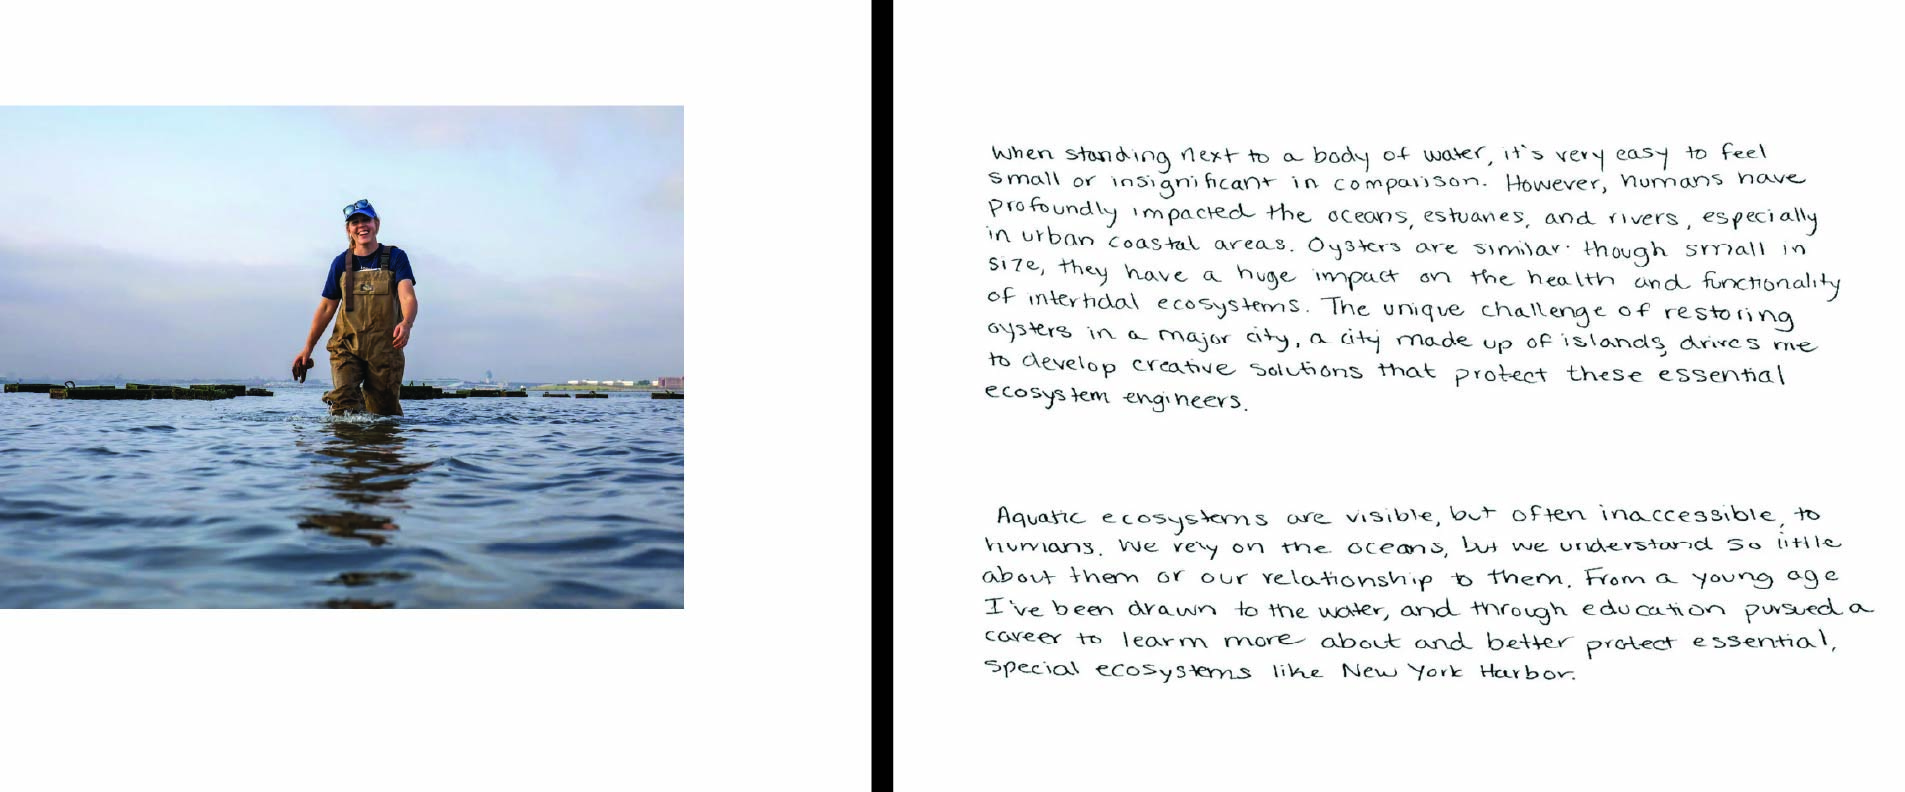 When standing next to a body of water, it's very easy to feel
small or insignificant in comparison. However, humans have
profoundly impacted the oceans, estuaries, and rivers, especially
in urban coastal areas. Oysters are similar: though small in
size, they have a huge impact on the health and functionality
of intertidal ecosystems. The unique challenge of restoring
oysters in a major city, a city made up of islands, drives me
to develop creative solutions that protect these essential
ecosystem engineers.
Aquatic ecosystems are visible, but often inaccessible, to
humans. We rely on the oceans, but we understand so little
about them or our relationship to them. From a young age
I've been drawn to the water, and through education pursued a
career to learn more about and better protect essential,
special ecosystems like New York Harbor.